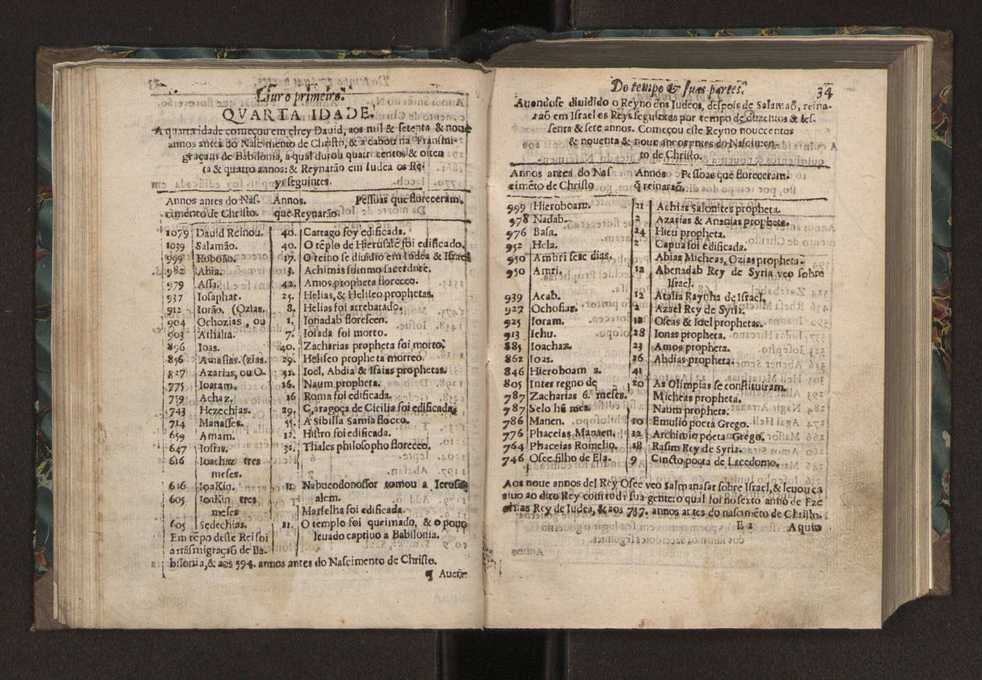 Liuro primeiro.
QVARTA IDADE.
A quarta idade começou em elrey Dauid, aos mil & setenta & noue
annos antes do Nascimento de Christo, & acabou na Transmi-
graçam de Babilonia, a qual durou quatrocentos & oiten
ta & quatro annos: & Reynarão em Iudea os Re-
ys seguintes.
Annos antes do Nas- Annos. Pessoas que florecerám.
cimento de Christo. que Reynarão.
1079 Dauid Reinou. 40. Cartago foy edificada.
1039 Salamão. 40. O tẽplo de Hierusalẽ foi edificado.
999 Roboão. 17. O reino se diuidio em Iudea & Israel
982 Abia. 3. Achimas summo sacerdote.
979 Assa. 42. Amos propheta florecco.
937 Iosaphat. 25. Helias, & Heliseo prophetas.
912 Iorão. (Ozias. 8. Helias foi arrebatado.
904 Ochozias, ou 1. Ionadab floresceu.
903 Athalia. 7. Ioiada foi morto.
896 Ioas. 40. Zacharias propheta foi morto.
856 Amasias. (zias. 29. Heliseo propheta morreo.
827 Azarias, ou O- 52. Ioel, Abdia & Isaias prophetas.
775 Ioatam. 16. Naum propheta.
759 Achaz. 16 Roma foi edificada.
743 Hezechias. 29. Caragoça de Cicilia foi edificada
714 Manasses. 55. A Sibilla Samia florco.
659 Amam. 12. Histro foi edificada.
647 Iosias. 31. Thales philosopho florecco.
616 Ioachaz tres
meses.
616 IoaKin. 11. Nabucodonosor tomou a Ierusa
605 IoaKin tres alem.
meses Marselha foi edificada.
605 Sedechias. 11. O templo foi queimado, & o pouo
Em tẽpo deste Rei foi leuado captiuo a Babilonia.
a trãsmigraçaõ de Ba-
bilonia, & aos 594. annos antes do Nascimento de Christo.
¶ Auen-
Do tempo & suas partes. 34
Auendose diuidido o Reyno dos Iudeos, despois de Salamaõ, reina-
raõ em Israel os Reys seguintes por tempo de duzentos & ses-
senta & sete annos. Começou este Reyno nouecentos
& nouenta & noue annos antes do Nascimen-
to de Christo.
Annos antes do Nas Annos Pessoas que floreceram.
cimẽto de Christo q̃ reinarão.
999 Hieroboam. 21 Achias Salonites propheta.
978 Nadab. 2 Azarias & Ananias prophetas.
976 Basa. 24 Hieu propheta.
952 Hela. 2 Capua foi edificada.
950 Ambri sete dias. Abias Micheas, Ozias propheta.
950 Amri. 12 Abenadab Rey de Syria veo sobre
Israel.
939 Acab. 12 Atalia Raynha de Israel.
927 Ochosias. 2 Azael Rey de Syria.
925 Ioram. 12 Oseas & Ioel prophetas.
913 Iehu. 28 Ionas propheta.
885 Ioachaz. 23 Amos propheta.
862 Ioas. 16 Abdias propheta.
846 Hieroboam 2. 41
805 Inter regno de 20 As Olimpias se constituiram.
787 Zacharias 6. meses. Micheas propheta.
787 Selo hũ mes. Naum propheta.
786 Manen. 10 Emulio poeta Grego.
776 Phaceias Manaen. 12 Archimio poeta Grego.
764 Phaceias Romelio. 18 Rasim Rey de Syria.
746 Osee filho de Ela. 9 Cineto poeta de Lacedomo.
Aos noue annos del Rey Osee veo Salmanasar sobre Israel, & leuou ca
tiuo ao dito Rey com toda sua gente: o qual foi no sexto anno de Eze
chias Rey de Iudea, & aos 737. annos antes do nascimẽto de Christo.
E 2 Aquio